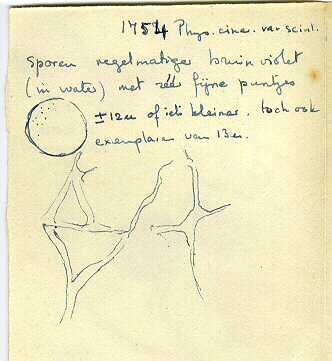 1754 Phys. cine. var scint.
Sporen regelmatige bruin violet
(in water) met zéé fijne puntjes
± 12µ of iets kleiner, toch ook
exemplaren van 13µ.